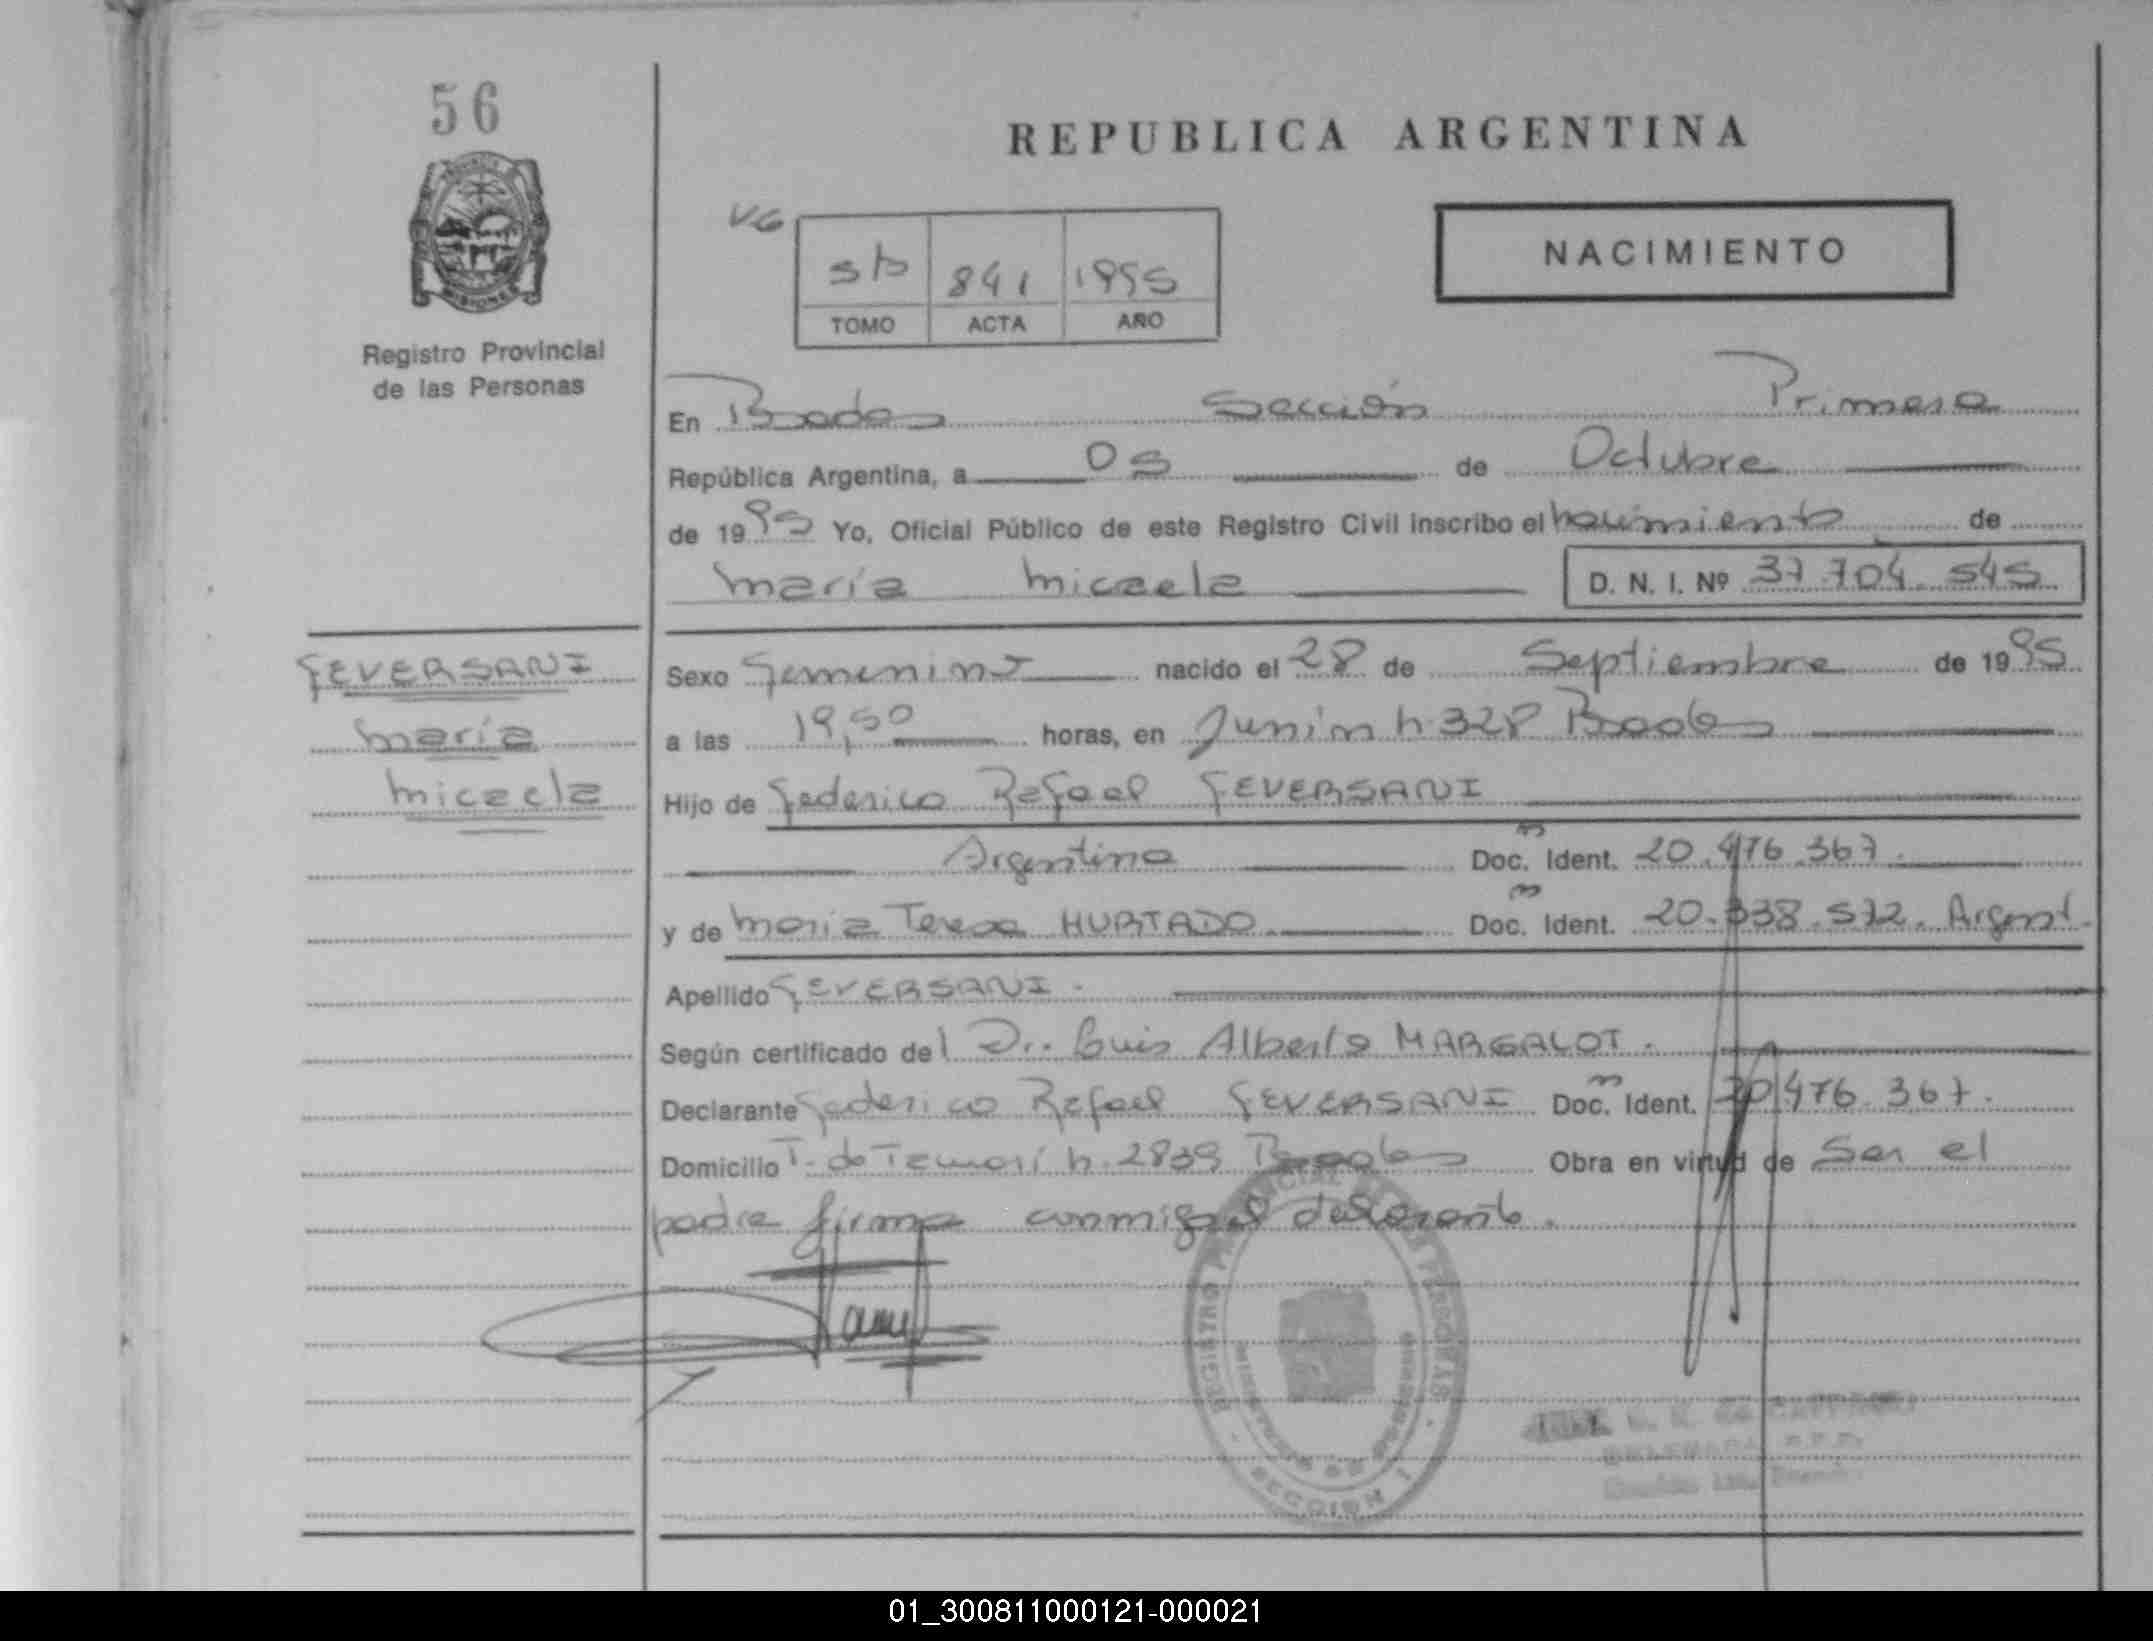 56
REPUBLICA ARGENTINA
NACIMIENTO
VG
5to 841 1995
TOMO ACTA AÑO
MISIONES
Registro Provincial
de las Personas
En Posadas Sección Primera
República Argentina, a 05 de Octubre
de 1995 Yo, Oficial Público de este Registro Civil inscribo el nacimiento de
María Micaela D. N. I. Nº 37 704. 545
FEVERSANI
María
Micaela
Sexo Femenino nacido el 28 de Septiembre de 1995
a las 19,50 horas, en Junín n. 328 Posadas
Hijo de Federico Rafael FEVERSANI
Argentina Doc. Ident. 20.476.367.
y de María Teresa HURTADO Doc. Ident. 20.338.572. Argent.
Apellido FEVERSANI.
Según certificado del Dr. Luis Alberto MARGALOT.
Declarante Federico Rafael FEVERSANI Doc. Ident. 20 476.367.
Domicilio T. de Tacuarí n. 2839 Posadas Obra en virtud de Ser el
padre firma conmigo el declarante.
REGISTRO PROVINCIAL DE LAS PERSONAS
MINISTERIO DE GOBIERNO
SECCION 1
01_300811000121-000021